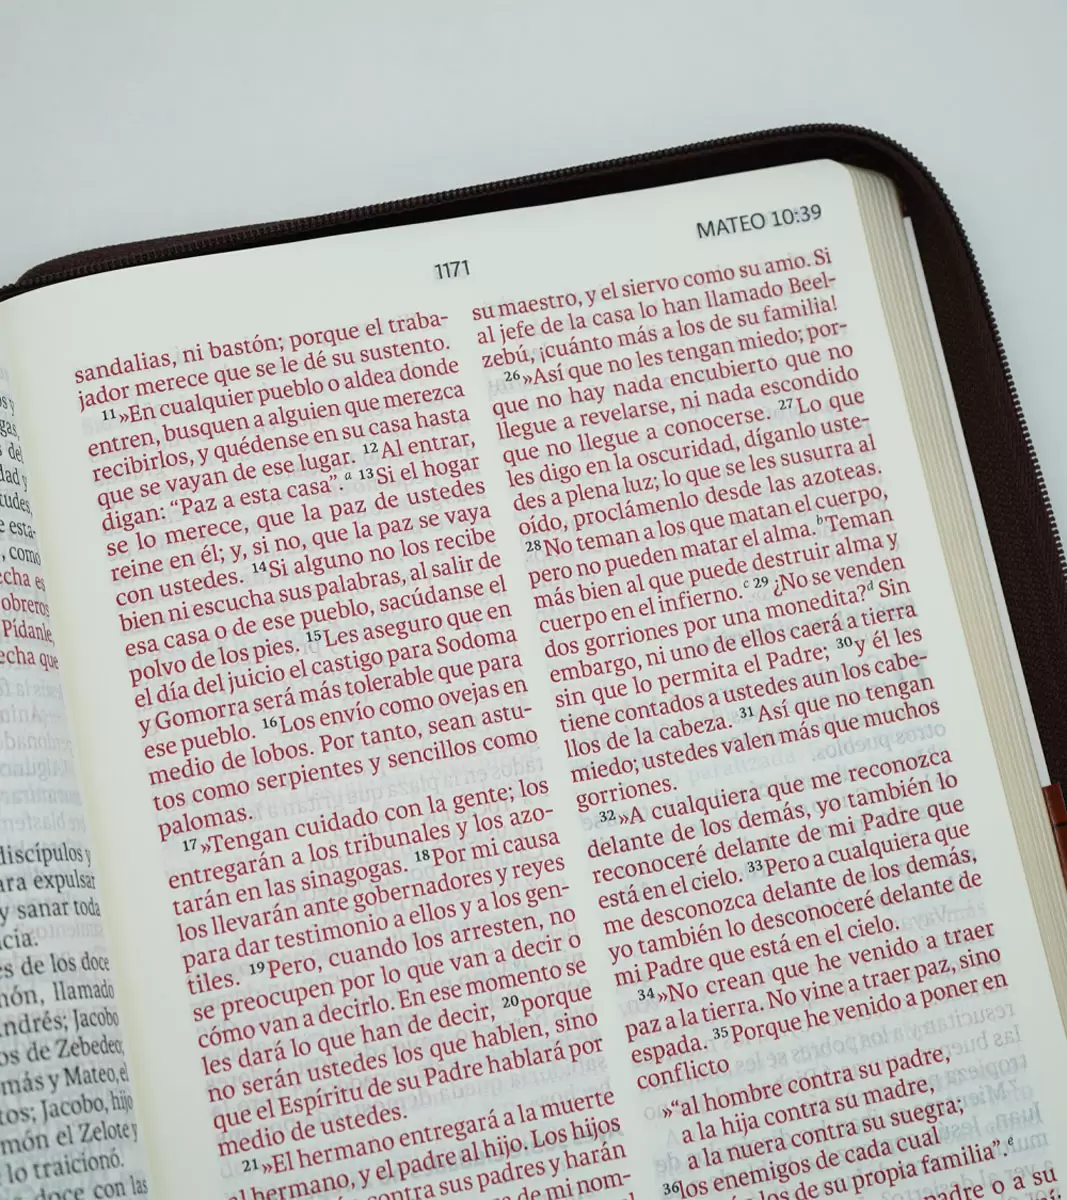 s y
gas,
s del
dad y
tudes,
e esta-
, como
echa es
obreros
Pídanle,
echa que
discípulos y
ara expulsar
y sanar toda
ncia.
es de los doce
món, llamado
ndrés; Jacobo
os de Zebedeo;
más y Mateo, el
tos; Jacobo, hijo
món el Zelote y
lo traicionó.
doce con las
1171
MATEO 10:39
sandalias, ni bastón; porque el traba-
jador merece que se le dé su sustento.
11 »En cualquier pueblo o aldea donde
entren, busquen a alguien que merezca
recibirlos, y quédense en su casa hasta
que se vayan de ese lugar. 12 Al entrar,
digan: “Paz a esta casa”.a 13 Si el hogar
se lo merece, que la paz de ustedes
reine en él; y, si no, que la paz se vaya
con ustedes. 14 Si alguno no los recibe
bien ni escucha sus palabras, al salir de
esa casa o de ese pueblo, sacúdanse el
polvo de los pies. 15 Les aseguro que en
el día del juicio el castigo para Sodoma
y Gomorra será más tolerable que para
ese pueblo. 16 Los envío como ovejas en
medio de lobos. Por tanto, sean astu-
tos como serpientes y sencillos como
palomas.
17 »Tengan cuidado con la gente; los
entregarán a los tribunales y los azo-
tarán en las sinagogas. 18 Por mi causa
los llevarán ante gobernadores y reyes
para dar testimonio a ellos y a los gen-
tiles. 19 Pero, cuando los arresten, no
se preocupen por lo que van a decir o
cómo van a decirlo. En ese momento se
les dará lo que han de decir, 20 porque
no serán ustedes los que hablen, sino
que el Espíritu de su Padre hablará por
medio de ustedes.
21 »El hermano entregará a la muerte
al hermano, y el padre al hijo. Los hijos
contra sus padres y harán
de mi nom-
su maestro, y el siervo como su amo. Si
al jefe de la casa lo han llamado Beel-
zebú, ¡cuánto más a los de su familia!
26 »Así que no les tengan miedo; por-
que no hay nada encubierto que no
llegue a revelarse, ni nada escondido
que no llegue a conocerse. 27 Lo que
les digo en la oscuridad, díganlo uste-
des a plena luz; lo que se les susurra al
oído, proclámenlo desde las azoteas.
28 No teman a los que matan el cuerpo,
pero no pueden matar el alma.b Teman
más bien al que puede destruir alma y
cuerpo en el infierno.c 29 ¿No se venden
dos gorriones por una monedita?d Sin
embargo, ni uno de ellos caerá a tierra
sin que lo permita el Padre; 30 y él les
tiene contados a ustedes aun los cabe-
llos de la cabeza. 31 Así que no tengan
miedo; ustedes valen más que muchos
gorriones.
32 »A cualquiera que me reconozca
delante de los demás, yo también lo
reconoceré delante de mi Padre que
está en el cielo. 33 Pero a cualquiera que
me desconozca delante de los demás,
yo también lo desconoceré delante de
mi Padre que está en el cielo.
34 »No crean que he venido a traer
paz a la tierra. No vine a traer paz, sino
espada. 35 Porque he venido a poner en
conflicto
»“al hombre contra su padre,
a la hija contra su madre,
a la nuera contra su suegra;
36 los enemigos de cada cual
los de su propia familia”.e
o a su